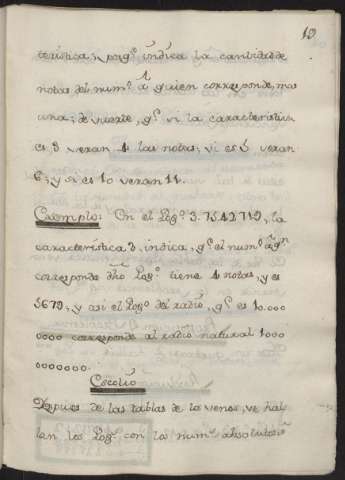 10
terística; porq.e indica la cantidad de
notas del num.o â quien corresponde, mas
una; de suerte, q.e si la caracteristica
es 3 seran 4 las notas; si es 5 seran
6; y si es 10 seran 11.
Exemplo: En el Log.o 3.7542719, la
caracteristica 3, indica, q.e el num.o â q.n
corresponde dho Log.o tiene 4 notas, y es
5679, y asi el Log.o del radio, q.e es 10.000
0000 corresponde al radio natural 1000
0000000.
Escolio
Despues de las tablas de los senos, se hal
lan los Log.s con los num.s absolutos